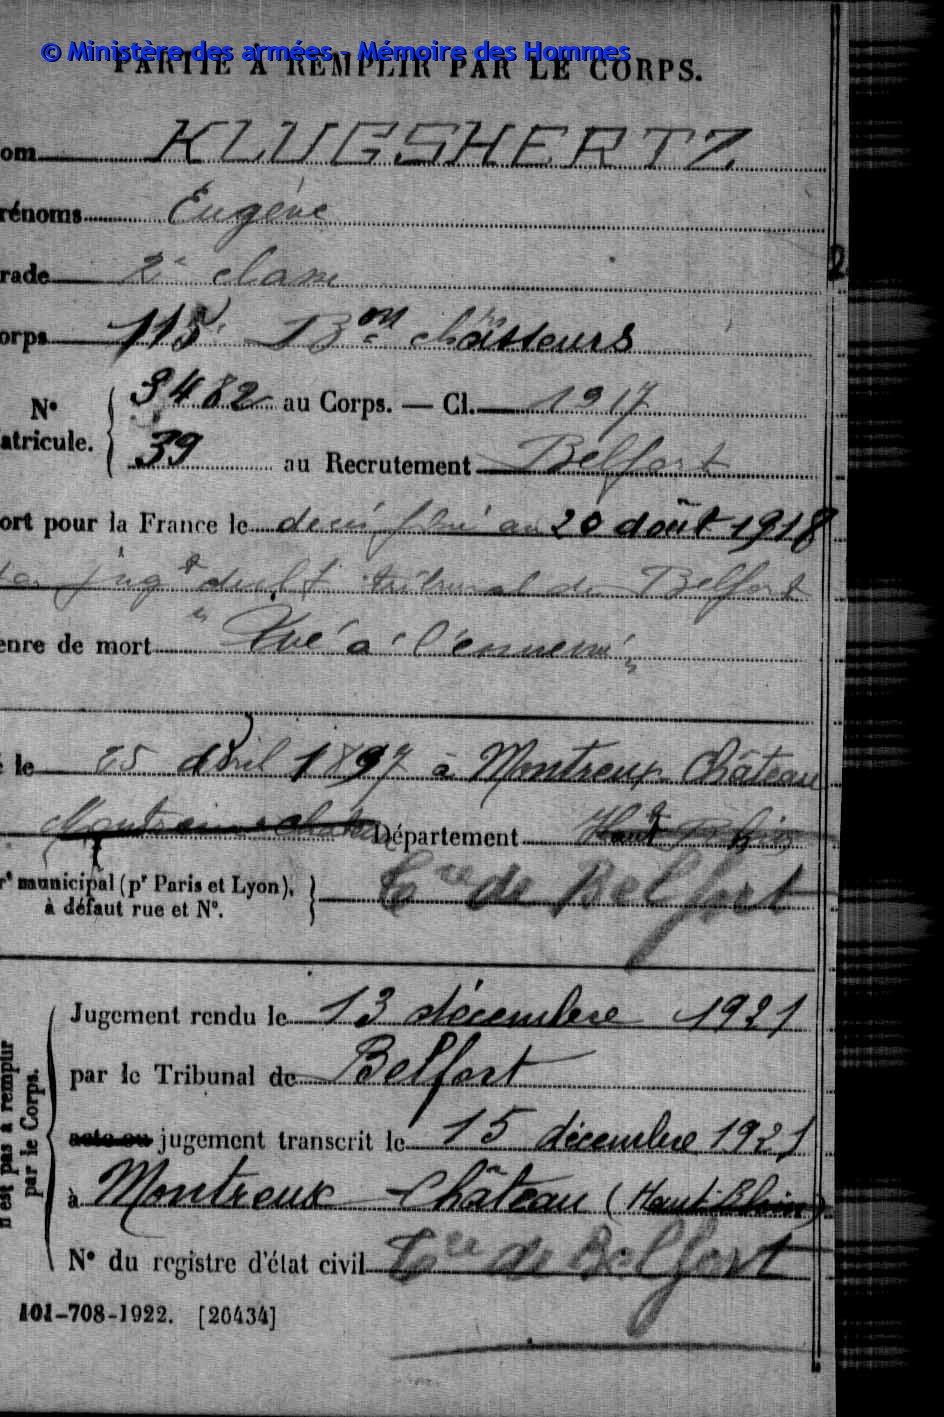 © Ministère des armées - Mémoire des Hommes
PARTIE À REMPLIR PAR LE CORPS.
om KLUGSHERTZ
rénoms Eugène
rade 2e classe
orps 115e Bon chasseurs
N° 3482 au Corps. — Cl. 1917
atricule. 39 au Recrutement Belfort
ort pour la France le décès fixé au 20 août 1918
par jugt déclt tribunal de Belfort
enre de mort "Tué à l'ennemi"
é le 25 Avril 1897 à Montreux Château
Montreux-Château Département Haut Rhin
rt municipal (pr Paris et Lyon), à défaut rue et N°. Tre de Belfort
n'est pas à remplir par le Corps.
Jugement rendu le 13 décembre 1921
par le Tribunal de Belfort
acte ou jugement transcrit le 15 décembre 1921
à Montreux-Château (Haut-Rhin)
N° du registre d'état civil Tre de Belfort
101-708-1922. [26434]